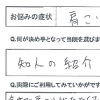 お悩みの症状 肩こ
Q.何が決め手となって当院を選びま
知人の紹介
Q.実際にご利用してみていかがです